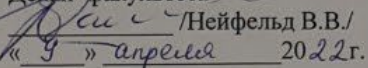 /Нейфельд В.В./
«9» апреля 2022г.